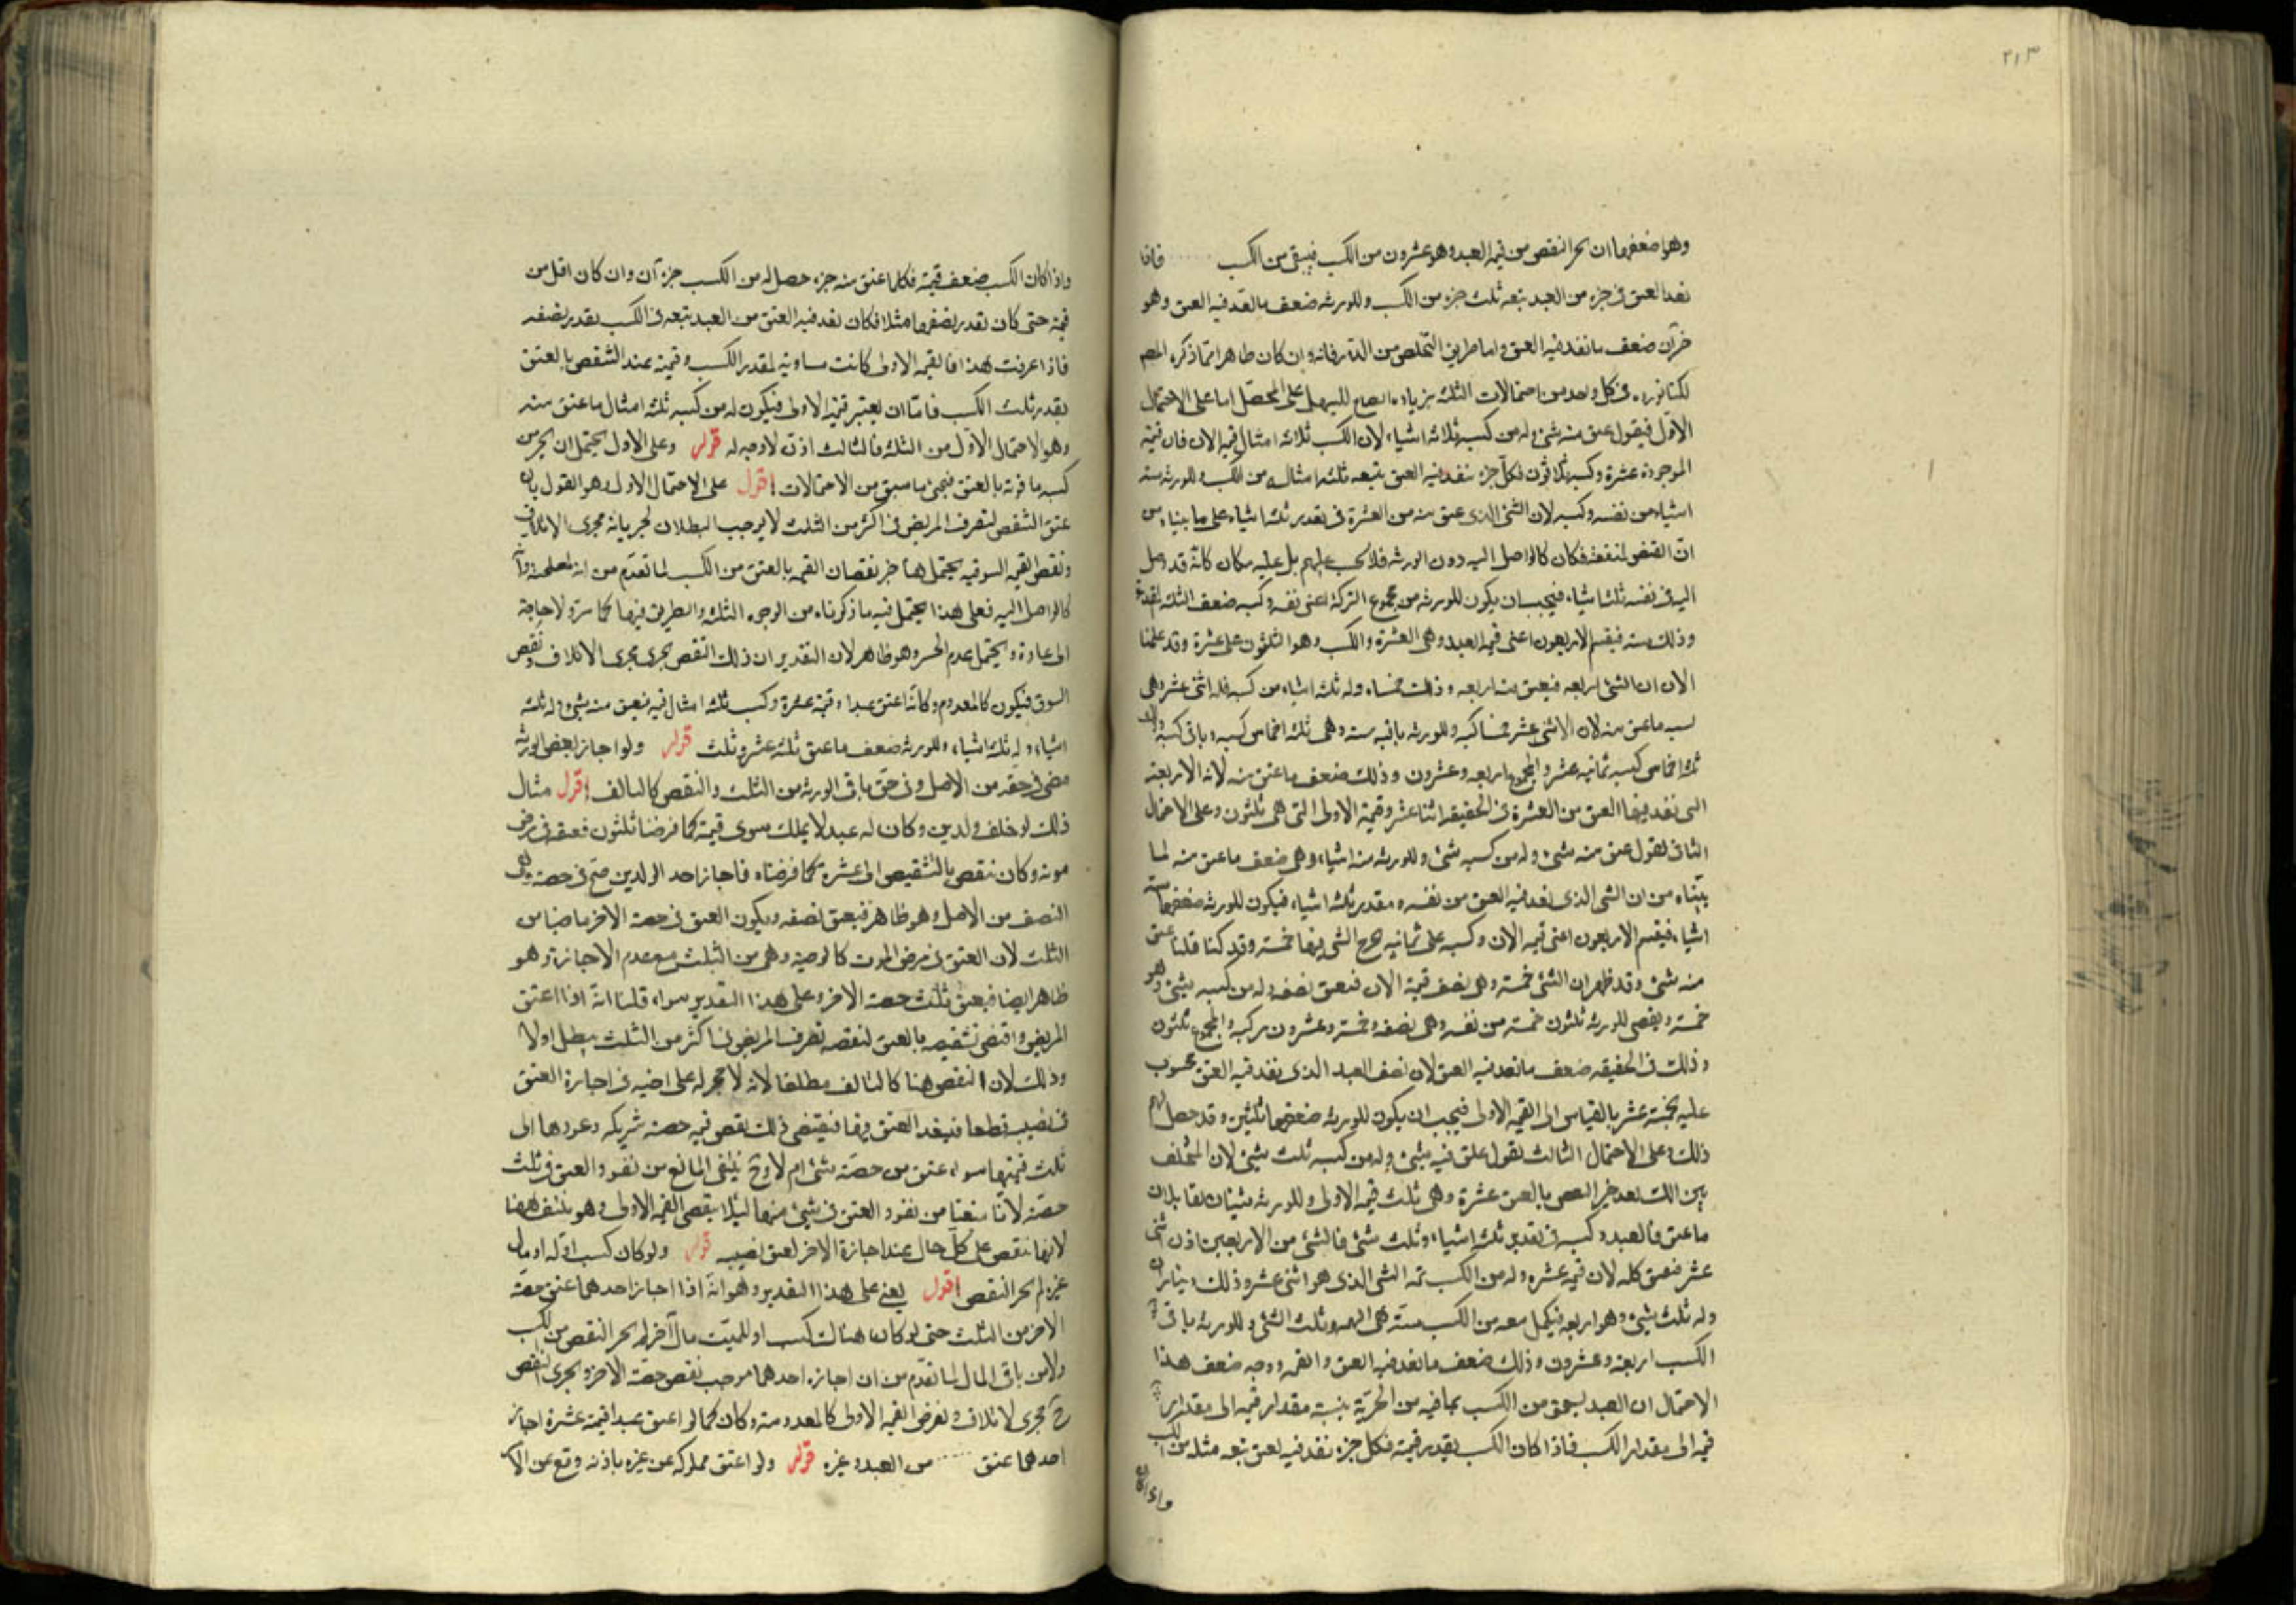 ٢١٣
وهو ضعفها ان يجبر النقص من قيمة العبد وهو عشرون من الكسب فيبقى من الكسب فاذا
نفذ العتق فى جزء من العبد يتبعه ثلث جزء من الكسب وللورثه ضعف ما نفذ فيه العتق وهو
جزآن ضعف ما نفذ فيه العتق واما طريق التخلص من الدور فانه وان كان ظاهرا مما ذكره المص
لكنا نورده فى كل واحد من احتمالات الثلثه بزياده ايضاح ليسهل على المحصل اما على الاحتمال
الاول فيقول عتق منه شئ وله من كسبه ثلاثه اشياء لان الكسب ثلاثه امثال قيمه الان فان قيمته
الموجودة عشرة وكسبه ثلاثون فكل جزء ينفذ فيه العتق يتبعه ثلثه امثاله من الكسب وللورثه سته
اشياء من نفسه وكسبه لان الشئ الذى عتق منه من العشرة فى تقدير ثلثه اشياء على ما بيناه من
ان النقص لمنفعته فكان كالواصل اليه دون الورثه فلا يحسب عليهم بل عليه فكان كانه قد وصل
اليه فى نفسه ثلثه اشياء فيجب ان يكون للورثه من مجموع التركة اعنى نفسه وكسبه ضعف الثلثه
وذلك سته فيقسم الاربعون اعنى قيمه العبد وهى العشرة والكسب وهو الثلثون على عشرة وقد علمنا
الان ان الشئ اربعه فيعتق منه اربعه وذلك خمساه وله ثلثه اشياء من كسبه فله اثنى عشر وهى
نسبه ما عتق منه لان الاثنى عشر خمسا كسبه وللورثه باقيه سته وهى ثلثه اخماس كسبه وباقى كسبه
ثلثه اخماس كسبه ثمانيه عشر والمجموع اربعه وعشرون وذلك ضعف ما عتق منه لانه الاربعة
التى نفذ فيها العتق من العشرة فى الحقيقه اثنا عشر وقيمة الاولى التى هى ثلثون وعلى الاحتمال
الثانى نقول عتق منه شئ وله من كسبه شئ وللورثه سته اشياء وهى ضعف ما عتق منه لما
بيناه من ان الشئ الذى نفذ فيه العتق من نفسه مقدر ثلثه اشياء فيكون للورثه ضعفها سته
اشياء فيقسم الاربعون اعنى قيمه الان وكسبه على ثمانيه يخرج الشئ فيها خمسة وقد كنا قلنا عتق
منه شئ وقد ظهر ان الشئ خمسة وهى نصف قيمة الان فيعتق نصفه وله من كسبه شئ وهو
خمسة وبقى للورثه ثلثون خمسة من نفسه وهى نصفه وخمسة وعشرون من كسبه والمجموع ثلثون
وذلك فى الحقيقه ضعف ما نفذ فيه العتق لان نصف العبد الذى نفذ فيه العتق محسوب
عليه بخمسة عشر بالقياس الى القيمه الاولى فيجب ان يكون للورثه ضعفها ثلثين وقد حصل لهم
ذلك وعلى الاحتمال الثالث نقول عتق فيه شئ وله من كسبه ثلث شئ لان المخلف
ما عتق فالعبد وكسبه فى تقدير ثلثه اشياء وثلث شئ فالشئ من الاربعين اذن اثنى
عشر فيعتق كله لان قيمته عشره وله من الكسب تتمه الشئ الذى هو اثنى عشر وذلك ديناران
وله ثلث شئ وهو اربعه فيكمل معه من الكسب ستة هى التتمه وثلث الشئ وللورثه باقى
الكسب اربعة وعشرون وذلك ضعف ما نفذ فيه العتق ووجه ضعف هذا
الاحتمال ان العبد يستحق من الكسب بما فيه من الحرية بنسبة مقدار قيمه الى مقدار
قيمه الى مقدار الكسب فاذا كان الكسب بقدر قيمته فكل جزء نفذ فيه العتق تبعه مثله من الكسب
واذا كان
واذا كان الكسب ضعف قيمته فكلما عتق منه جزء حصل له من الكسب جزءان وان كان اقل من
قيمته حتى كان بقدر نصفها مثلا فكان نفذ فيه العتق من العبد يتبعه فى الكسب بقدر نصفه
فاذا عرفت هذا فالقيمه الاولى كانت مساويه لمقدر الكسب وقيمته عند الشقص بالعتق
بقدر ثلث الكسب فاما ان يعتبر قيمته الاولى فيكون له من كسبه ثلثه امثال ما عتق منه
وهو الاحتمال الاول من الثلثه فالثالث اذن لا وجه له قوله وعلى الاول يحتمل ان يجبر من
كسبه ما فوته بالعتق فيجئ ما سبق من الاحتمالات اقول على الاحتمال الاول وهو القول بان
عتق الشقص لتصرف المريض فى اكثر من الثلث لا يوجب البطلان لجريانه مجرى الاتلاف
ونقص القيمه السوقيه يحتمل هنا جبر نقصان القيمه بالعتق من الكسب لما تقدم من انه لمصلحته وانه
كالواصل اليه فعلى هذا يحتمل فيه ما ذكرناه من الوجوه الثلثه والطريق فيها كما مر ولا حاجة
الى عادة ويحتمل عدم الجبر وهو ظاهر لان التقدير ان ذلك النقص يجرى مجرى الاتلاف ونقص
السوق فيكون كالمعدوم وكانه اعتق عبدا وقيمته عشرة وكسب ثلثه امثال قيمه فيعتق منه شئ وله ثلثه
اشياء وله ثلثه اشياء وللورثه ضعف ما عتق ثلثه عشر وثلث قوله ولو اجاز بعض الورثه
مضى فى حقه من الاصل وفى حق باقى الورثه من الثلث والنقص كالتالف اقول مثال
ذلك لو خلف ولدين وكان له عبد لا يملك سوى قيمته كما فرضنا ثلثون فعتقه فى مرض
موته وكان ينقص بالتشقيص الى عشرة كما فرضناه فاجاز احد الولدين صح فى حصته وهى
النصف من الاصل وهو ظاهر فيعتق نصفه ويكون العتق فى حصة الاخر ماضيا من
الثلث لان العتق فى مرض الموت كالوصية وهى من الثلث مع عدم الاجازة وهو
ظاهر ايضا فيعتق ثلث حصة الاخر وعلى هذا التقدير سواء قلنا انه اذا اعتق
المريض واقتضى تشقيصه بالعتق لنقصه تصرف المريض فى اكثر من الثلث يبطل او لا
وذلك لان النقص هنا كالتالف مطلقا لانه لا حجر له على اخيه فى اجازة العتق
فى نصيبه قطعا فينفذ العتق فيها فيقتضى ذلك نقص قيمه حصة شريكه وعودها الى
ثلث قيمتها سواء عتق من حصته شئ ام لا وح ينتفى المانع من نفوذ العتق فى ثلث
حصته لانا منعنا من نفوذ العتق فى شئ منها لئلا ينقص القيمه الاولى وهو منتف ههنا
لانها تنقص على كل حال عند اجازة الاخر لعتق نصيبه قوله ولو كان كسب او له او مال
غيره لم يجبر النقص اقول يعنى على هذا التقدير وهو انه اذا اجاز احدهما عتق حصة
الاخر من الثلث حتى لو كان هناك كسب او للميت مال آخر لم يجبر النقص من الكسب
ولا من باقى المال لما تقدم من ان اجازه احدهما موجب نقص حصة الاخر ويجرى النقص
ح مجرى لاتلاف ونفرض القيمه الاولى كالمعدومة وكان كما لو اعتق عبدا قيمته عشرة اجاز
احدهما عتق من العبد وغيره قوله ولو اعتق مملوكه عن غيره باذنه وقع عن الآ